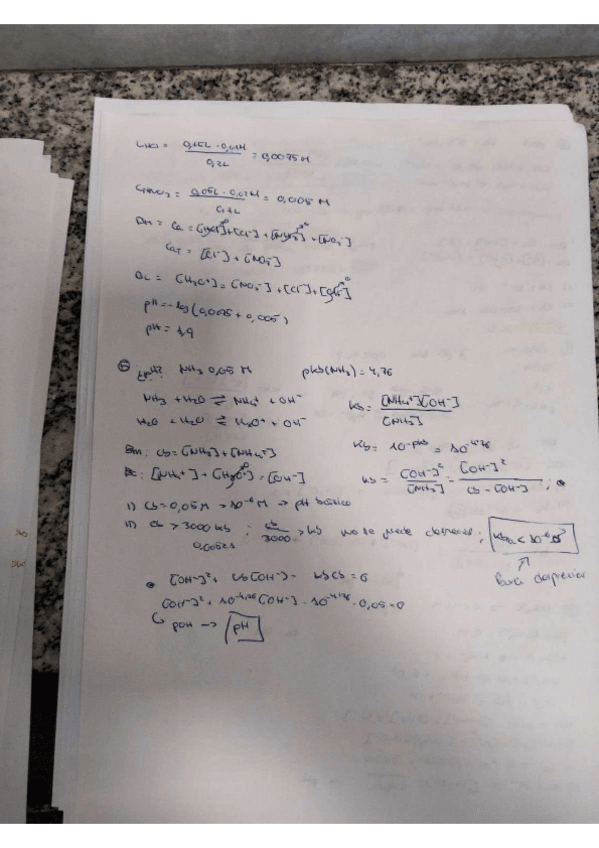 C HCl = 0,15L · 0,01M / 0,2L = 0,0075 M
C HNO3 = 0,05L · 0,02M / 0,2L = 0,005 M
BM = Ca = [HCl] + [Cl-] + [HNO3] + [NO3-]
CaT = [Cl-] + [NO3-]
BC = [H3O+] = [NO3-] + [Cl-] + [OH-]
pH = -log(0,0075 + 0,005)
pH = 1,9
⑥ ¿pH? NH3 0,05 M pKb(NH3) = 4,76
NH3 + H2O ⇌ NH4+ + OH- Kb = [NH4+][OH-] / [NH3]
H2O + H2O ⇌ H3O+ + OH- Kb = 10^-pKb = 10^-4,76
Bm: Cb = [NH3] + [NH4+]
BC: [NH4+] + [H3O+] = [OH-] Kb = [OH-]² / [NH3] = [OH-]² / Cb - [OH-] ;
I) Cb = 0,05 M > 10^-6 M → pH básico
II) Cb > 3000 Kb ; Cb / 3000 > Kb no se puede despreciar ;
0,0052
Para despreciar
[OH-]² + Kb[OH-] - KbCb = 0
[OH-]² + 10^-4,76 [OH-] - 10^-4,76 · 0,05 = 0
↳ pOH → pH